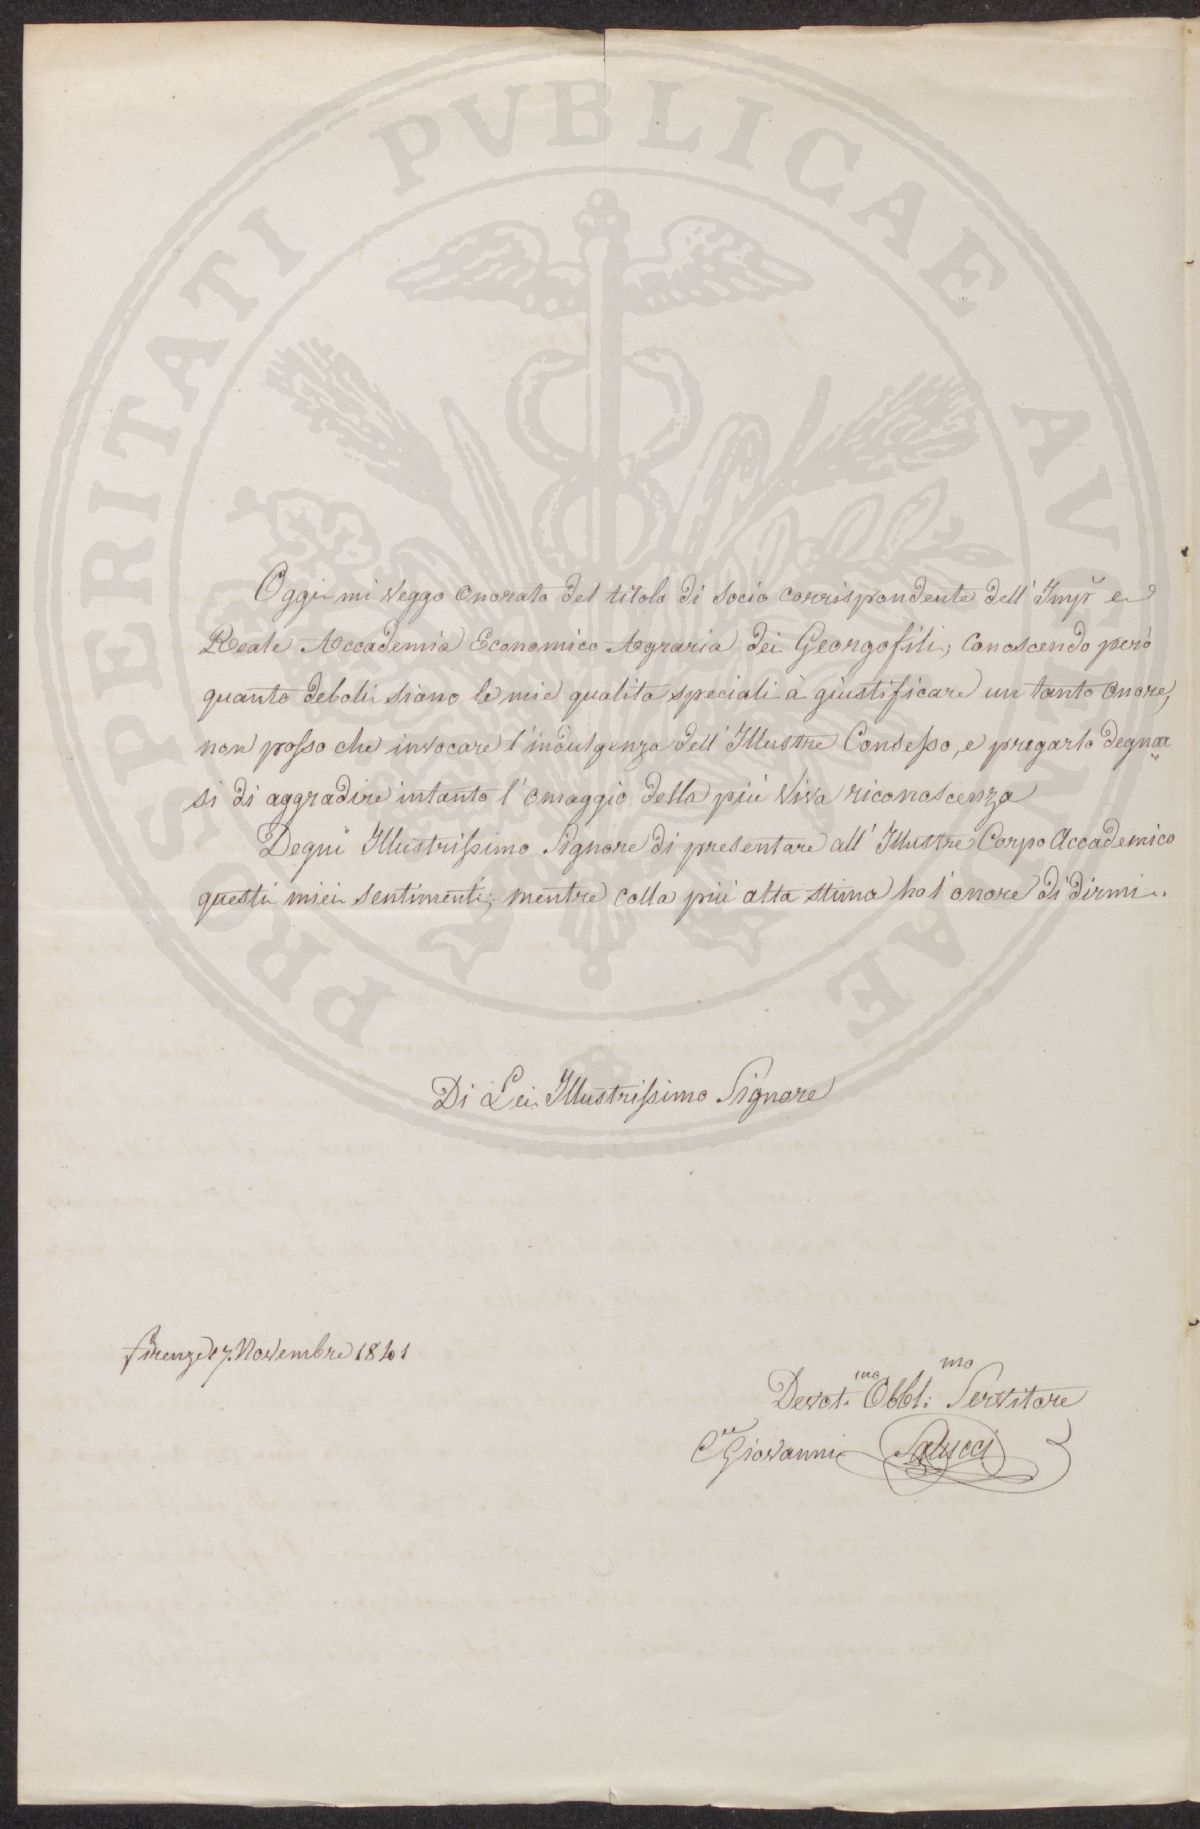 PROSPERITATI PVBLICAE AVGENDAE
Oggi mi veggo onorato del titolo di Socio corrispondente dell' Imp. e
Reale Accademia Economico Agraria dei Georgofili; Conoscendo però
quanto deboli siano le mie qualità speciali à giustificare un tanto onore,
non posso che invocare l'indulgenza dell' Illustre Consesso, e pregarlo degnar
si di aggradire intanto l' omaggio della più viva riconoscenza
Degni Illustrissimo Signore di presentare all' Illustre Corpo Accademico
questi miei sentimenti; mentre colla più alta stima ho l' onore di dirmi..
Di Lei Illustrissimo Signore
Firenze 17. Novembre 1841
Devot.mo Obbl.mo Servitore
Giovanni Salucci